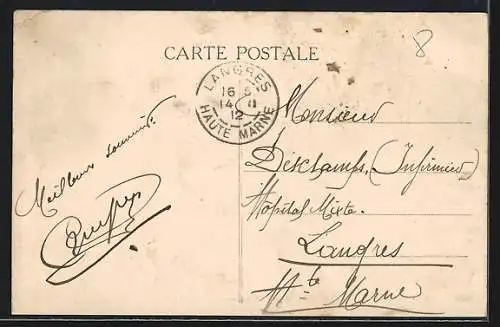 CARTE POSTALE
8
LANGRES
16
14
12
HAUTE MARNE
Meilleurs souvenirs.
Monsieur
Deschamps, (Infirmier)
Hôpital Mixte.
Langres
Hte Marne